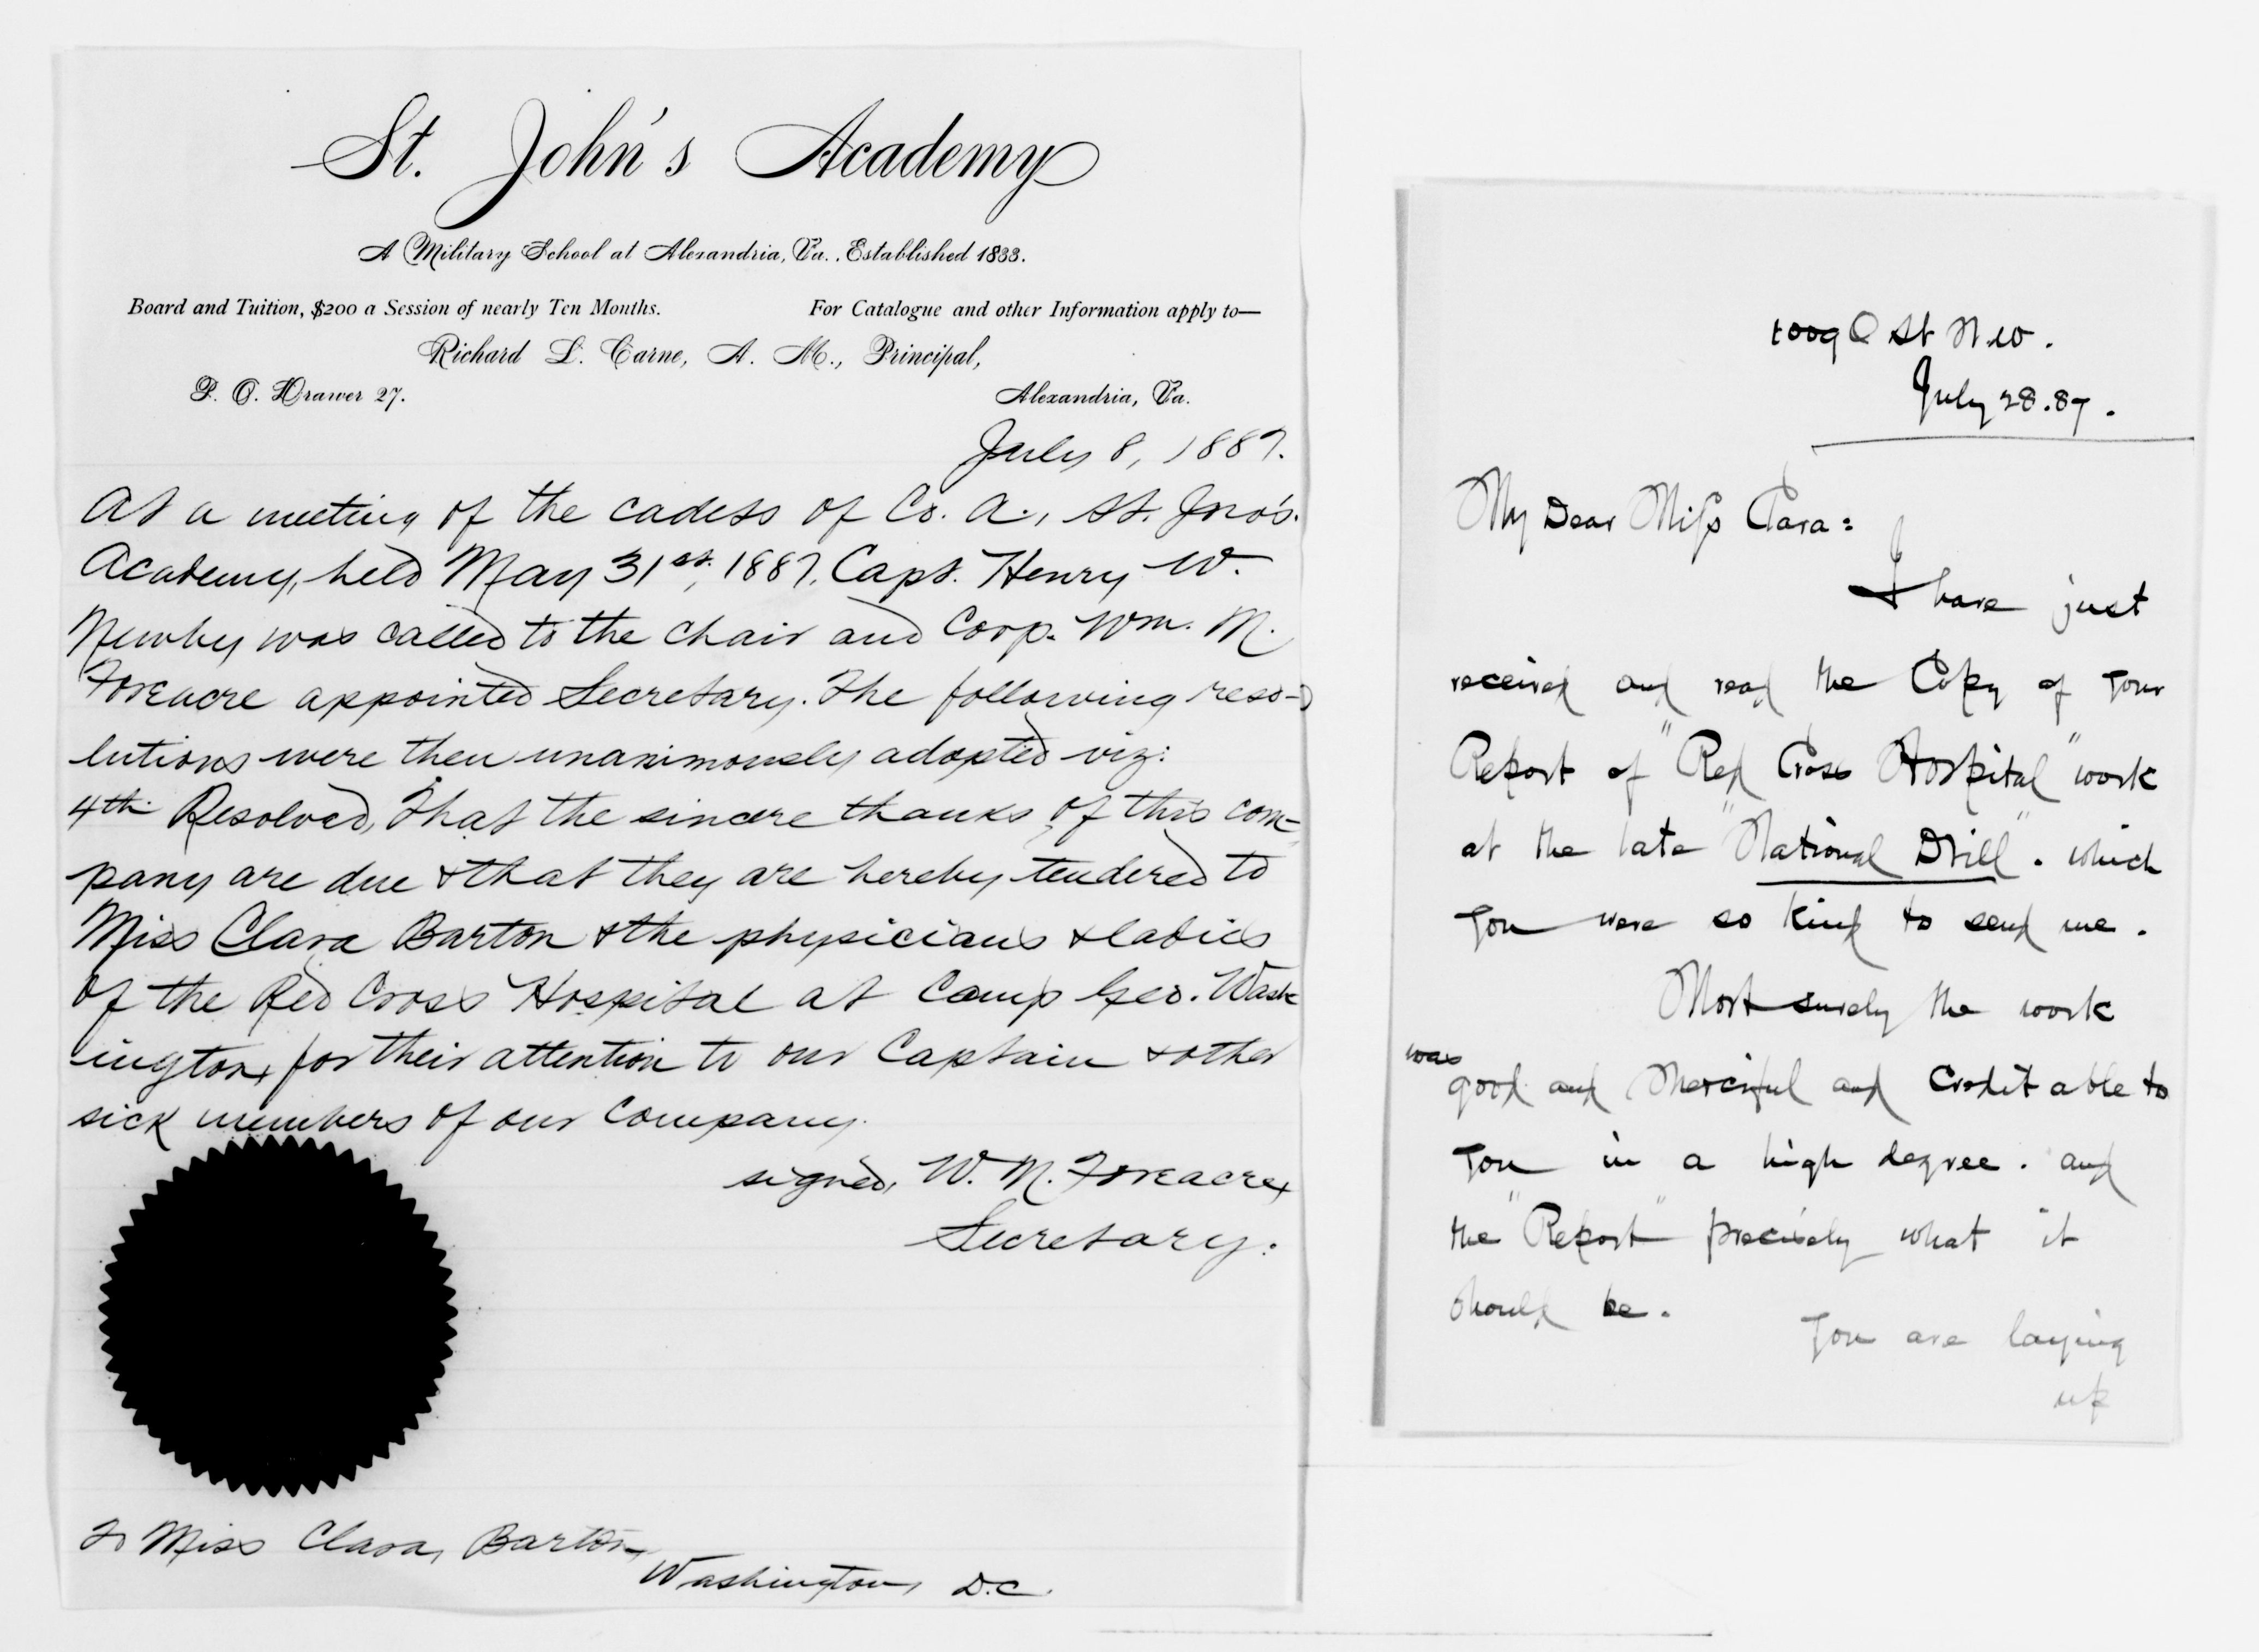 St. John's Academy
A Military School at Alexandria, Va., Established 1833.
Board and Tuition, $200 a Session of nearly Ten Months. For Catalogue and other Information apply to—
Richard L. Carne, A. M., Principal,
P. O. Drawer 27. Alexandria, Va.
July 8, 1887.
At a meeting of the cadets of Co. A., St. Jno's.
Academy, held May 31st, 1887, Capt. Henry W.
Newby was called to the chair and Corp. Wm. M.
Foreacre appointed Secretary. The following reso-
lutions were then unanimously adopted viz:
4th Resolved, That the sincere thanks of this com-
pany are due & that they are hereby tendered to
Miss Clara Barton & the physicians & ladies
of the Red Cross Hospital at Camp Geo. Wash
ington, for their attention to our Captain & other
sick members of our company.
signed, W. M. Foreacre,
Secretary.
To Miss Clara, Barton,
Washington, D.C.
1009 O St N.W.
July 28.87.
My Dear Miss Clara:
I have just
received and read the Copy of your
Report of "Red Cross Hospital" work
at the late "National Drill". which
you were so kind to send me.
Most surely the work
was
good and Merciful and Creditable to
you in a high degree. and
the "Report" precisely what it
should be.
You are laying
up